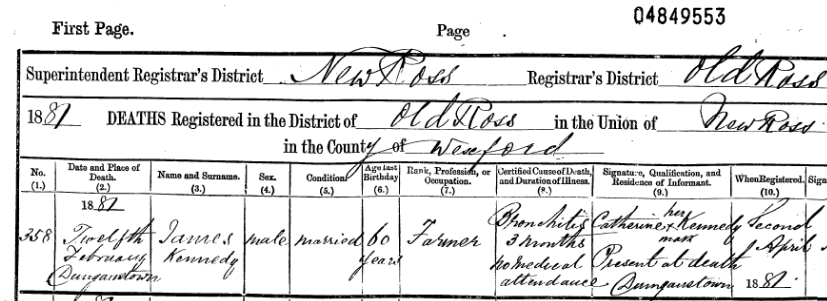 04849553
First Page. Page
Superintendent Registrar's District New Ross Registrar's District Old Ross
1881 DEATHS Registered in the District of Old Ross in the Union of New Ross
in the County of Wexford
No. (1.) Date and Place of Death. (2.) Name and Surname. (3.) Sex. (4.) Condition (5.) Age last Birthday (6.) Rank, Profession, or Occupation. (7.) Certified Cause of Death, and Duration of Illness. (8.) Signature, Qualification, and Residence of Informant. (9.) When Registered. (10.)
358
1881
Twelfth
February
Dunganstown
James
Kennedy
male
married
60
years
Farmer
Bronchitis
3 months
no medical
attendance
Catherine her x Kennedy
mark
Present at death
Dunganstown
Second
April
1881.